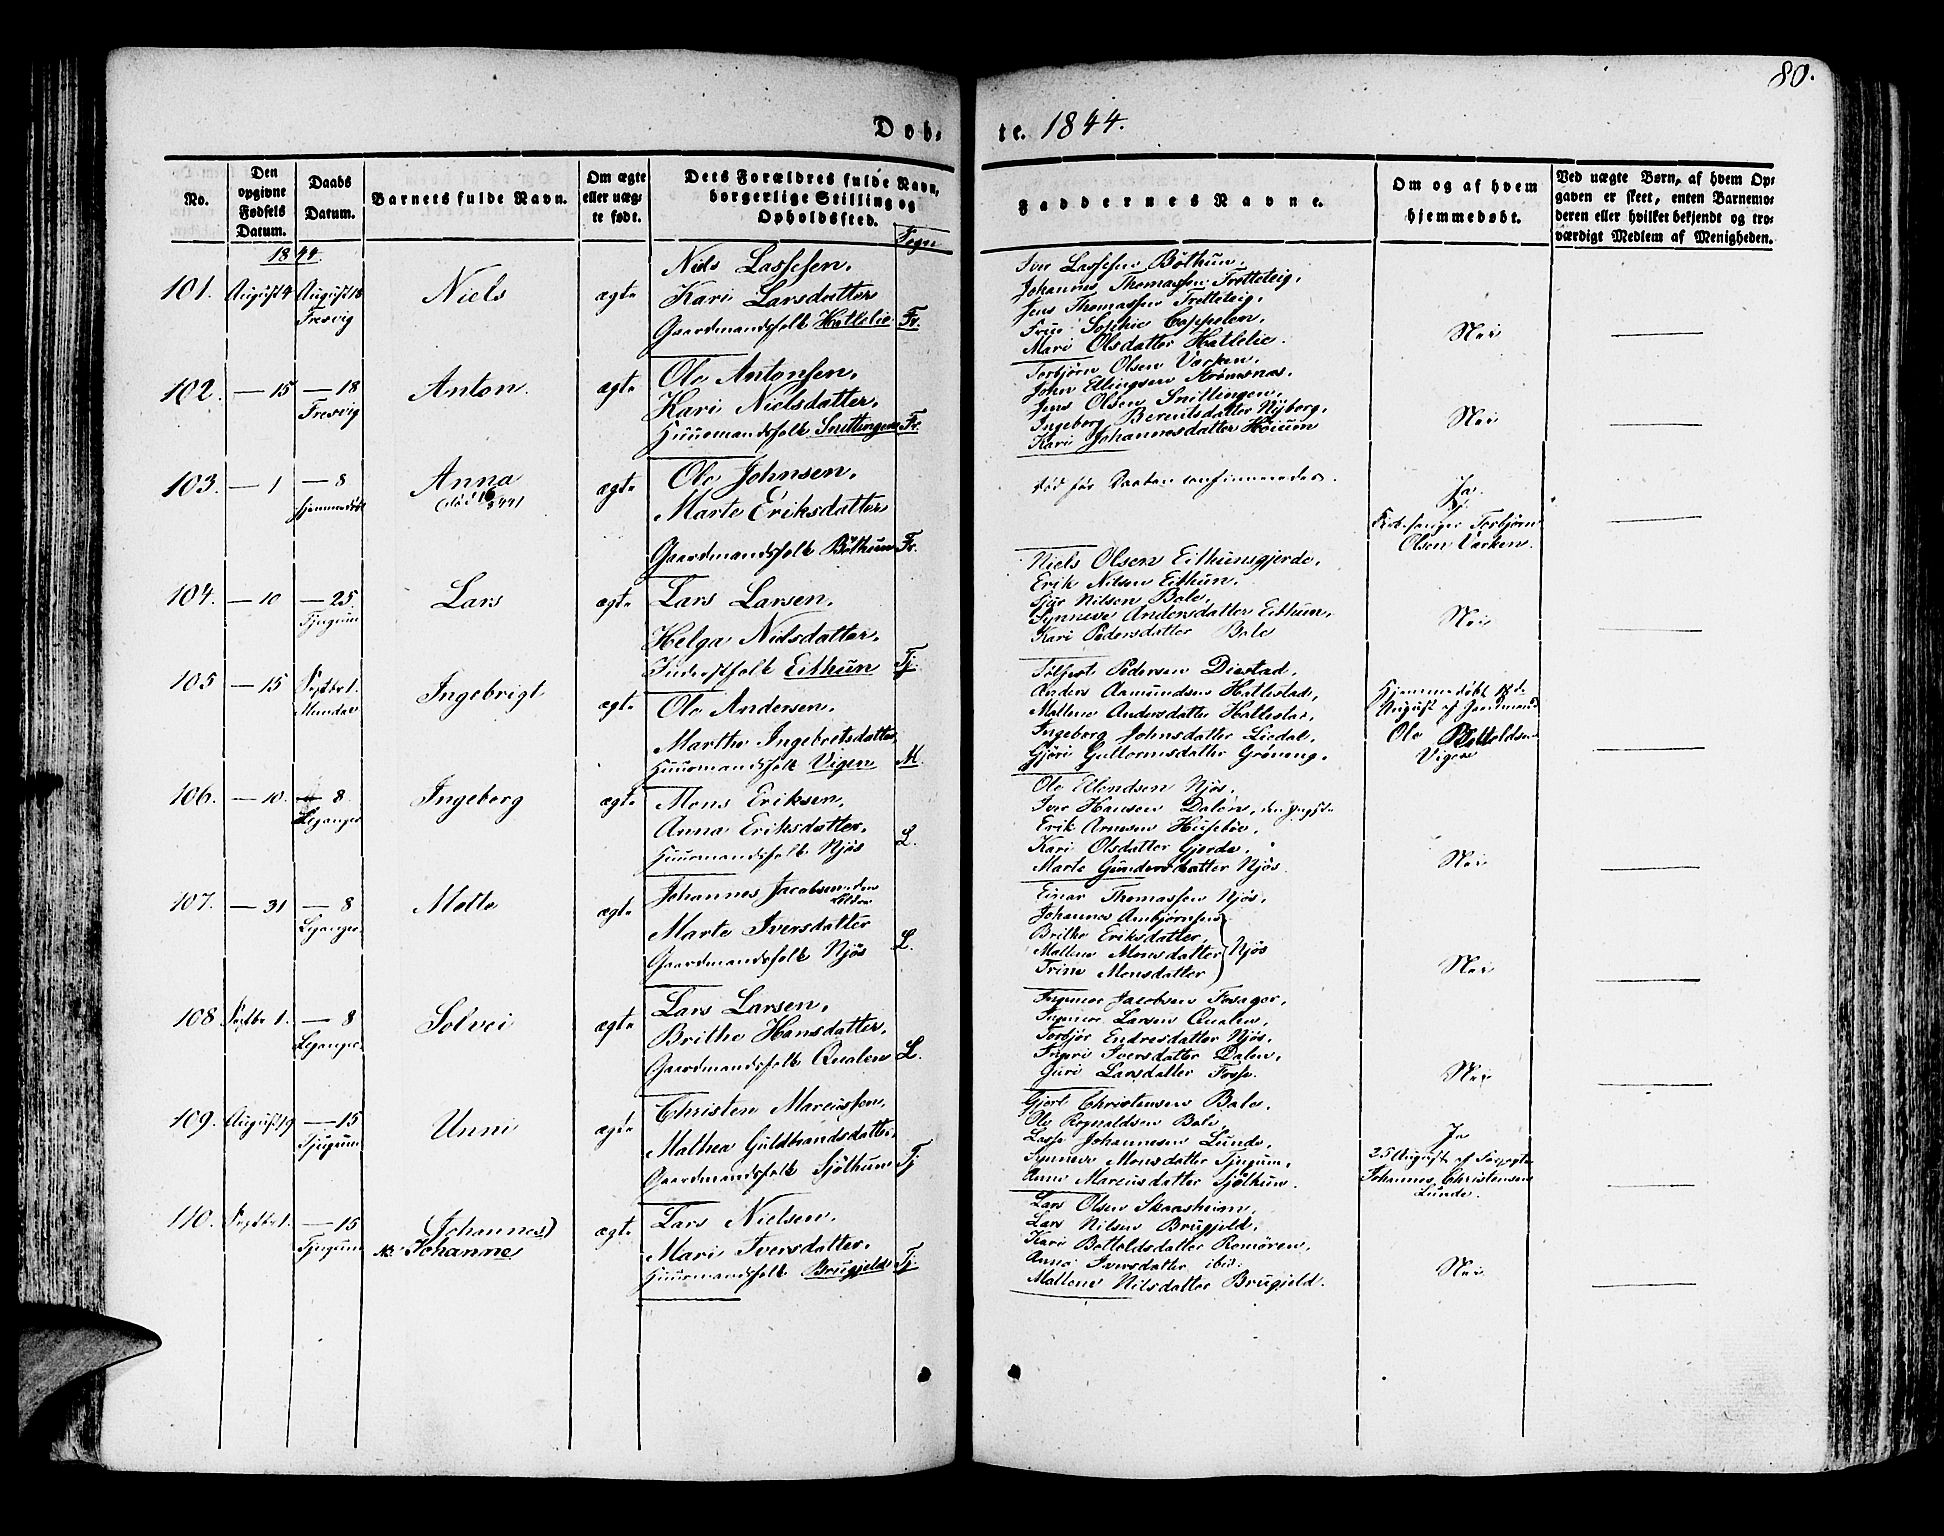 80.
Døb-
te. 1844.
No.
Den opgivne Fødsels Datum.
Daabs Datum.
Barnets fulde Navn.
Om ægte eller uægte født.
Dets Forældres fulde Navn, borgerlige Stilling og Opholdssted.
Sogn
Faddernes Navne.
Om og af hvem hjemmedøbt.
Ved uægte Børn, af hvem Opgaven er skeet, enten Barnemoderen eller hvilket bekjendt og troværdigt Medlem af Menigheden.
1844.
101. August 4 August 18 Fresvig
Niels
ægte
Niels Lassesen,
Kari Larsdatter
Gaardmandsfolk Hatlelie Fr.
Iver Lassesen Bøthun,
Johannes Thomassen Tretteteig,
Jens Thomassen Tretteteig,
Frue Sophie Cappelen,
Mari Olsdatter Hatlelie.
Nei
102. — 15 — 18 Fresvig
Anton.
ægte
Ole Antonsen,
Kari Nielsdatter,
Huusmandsfolk Snillingen Fr.
Torbjørn Olsen Varken,
John Ellingsen
Jens Olsen Snillingen,
Ingeborg Berentsdatter Nyborg,
Kari Johannesdatter Høium
Nei
103. — 1 — 8 Hjemmedøbt
Anna
ægte
Ole Johnsen,
Marte Eriksdatter
Gaardmandsfolk Bøthun Fr.
død før Daaben confirmeredes.
Ja.
Kirkesanger Torbjørn
Olsen Varken.
104. — 10 — 25 Tjugum
Lars
ægte
Lars Larsen,
Helga Nielsdatter,
Inderstfolk Eithun Tj.
Niels Olsen Eithunsgjerde,
Erik Nilsen Eithun,
Sjur Nilsen Bale,
Synneve Andersdatter Eithun,
Kari Pedersdatter Bale
Nei
105 — 15 Septbr 1. Mundal
Ingebrigt
ægte
Ole Andersen,
Marthe Ingebretsdatter
Huusmandsfolk Vigen M.
Pedersen Diestad,
Anders Aamundsen Hatlestad,
Mallene Andersdatter Hatlestad,
Ingeborg Johnsdatter Liedal,
Gjøri Guttormsdatter Grøning,
Hjemmedøbt 18de
August af
Ole
Vigen
106. — 10. — 8 Leganger
Ingeborg
ægte
Mons Eriksen,
Anna Eriksdatter,
Huusmandsfolk Njøs L.
Ole Ellendsen Njøs,
Iver Hansen Dalen, den yngste
Erik Arnesen Husebøe,
Kari Olsdatter Gjerde,
Marte Gundersdatter Njøs.
Nei
107. — 31 — 8 Leganger
Mette
ægte
Johannes Jacobsen den ældre
Marte Iversdatter
Gaardmandsfolk Njøs L.
Einar Thomassen Njøs,
Johannes Ambjørnsen
Brithe Eriksdatter,
Mallene Monsdatter Njøs
Trine Monsdatter
Nei
108 Septbr 1. — 8 Leganger
Solvei
ægte
Lars Larsen,
Brithe Hansdatter,
Gaardmandsfolk Qualen L.
Ingmar Jacobsen Tosager,
Ingmar Larsen Qualen,
Torbjør Endresdatter Njøs,
Ingeri Iversdatter Dalen,
Guri Larsdatter Fosse.
Nei
109. August 19 — 15 Tjugum
Unni
ægte
Christen Marcussen,
Mathea Guldbrandsdatter,
Gaardmandsfolk Sjøthun Tj
Gjert Christensen Bale,
Ole Rognaldsen Bale,
Lasse Johannesen Lunde,
Synneve Monsdatter Tjugum,
Anne Marcusdatter Sjøthun.
Ja
25 August af
Johannes Christensen
Lunde.
110. Septbr 1. — 15 Tjugum
(Johannes)
NB Johanne
ægte
Lars Nielsen,
Mari Iversdatter,
Huusmandsfolk Brugjeld Tj.
Lars Olsen Skaasheim,
Lars Nilsen Brugjeld,
Kari Botholdsdatter Romøren,
Anna Iversdatter ibid.
Mallene Nilsdatter Brugjeld.
Nei